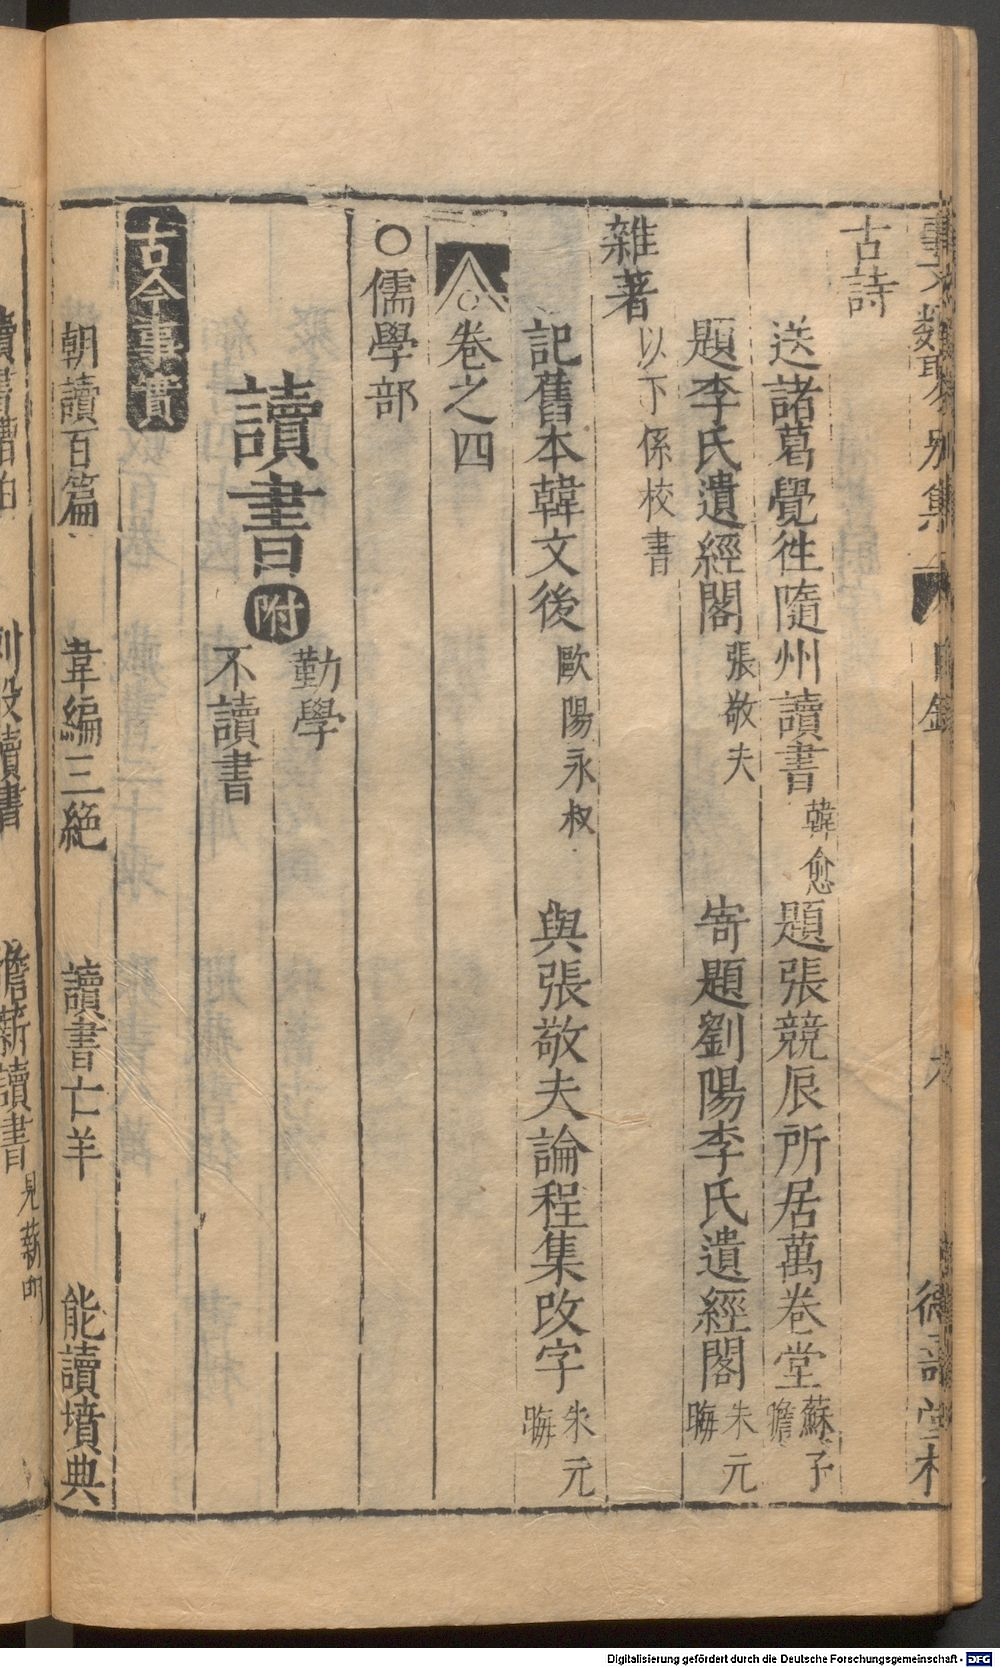 事文類聚別集 目錄 德壽堂梓
古詩
送諸葛覺徃隨州讀書 韓愈 題張競辰所居萬卷堂 蘇子瞻
題李氏遺經閣 張敬夫 寄題劉陽李氏遺經閣 朱元晦
雜著 以下係校書
記舊本韓文後 歐陽永叔 與張敬夫論程集改字 朱元晦
卷之四
○儒學部
讀書 附 勤學 不讀書
古今事實
朝讀百篇 韋編三絕 讀書亡羊 能讀墳典
讀書 讀書 擔薪讀書 見薪門
Digitalisierung gefördert durch die Deutsche Forschungsgemeinschaft - DFG